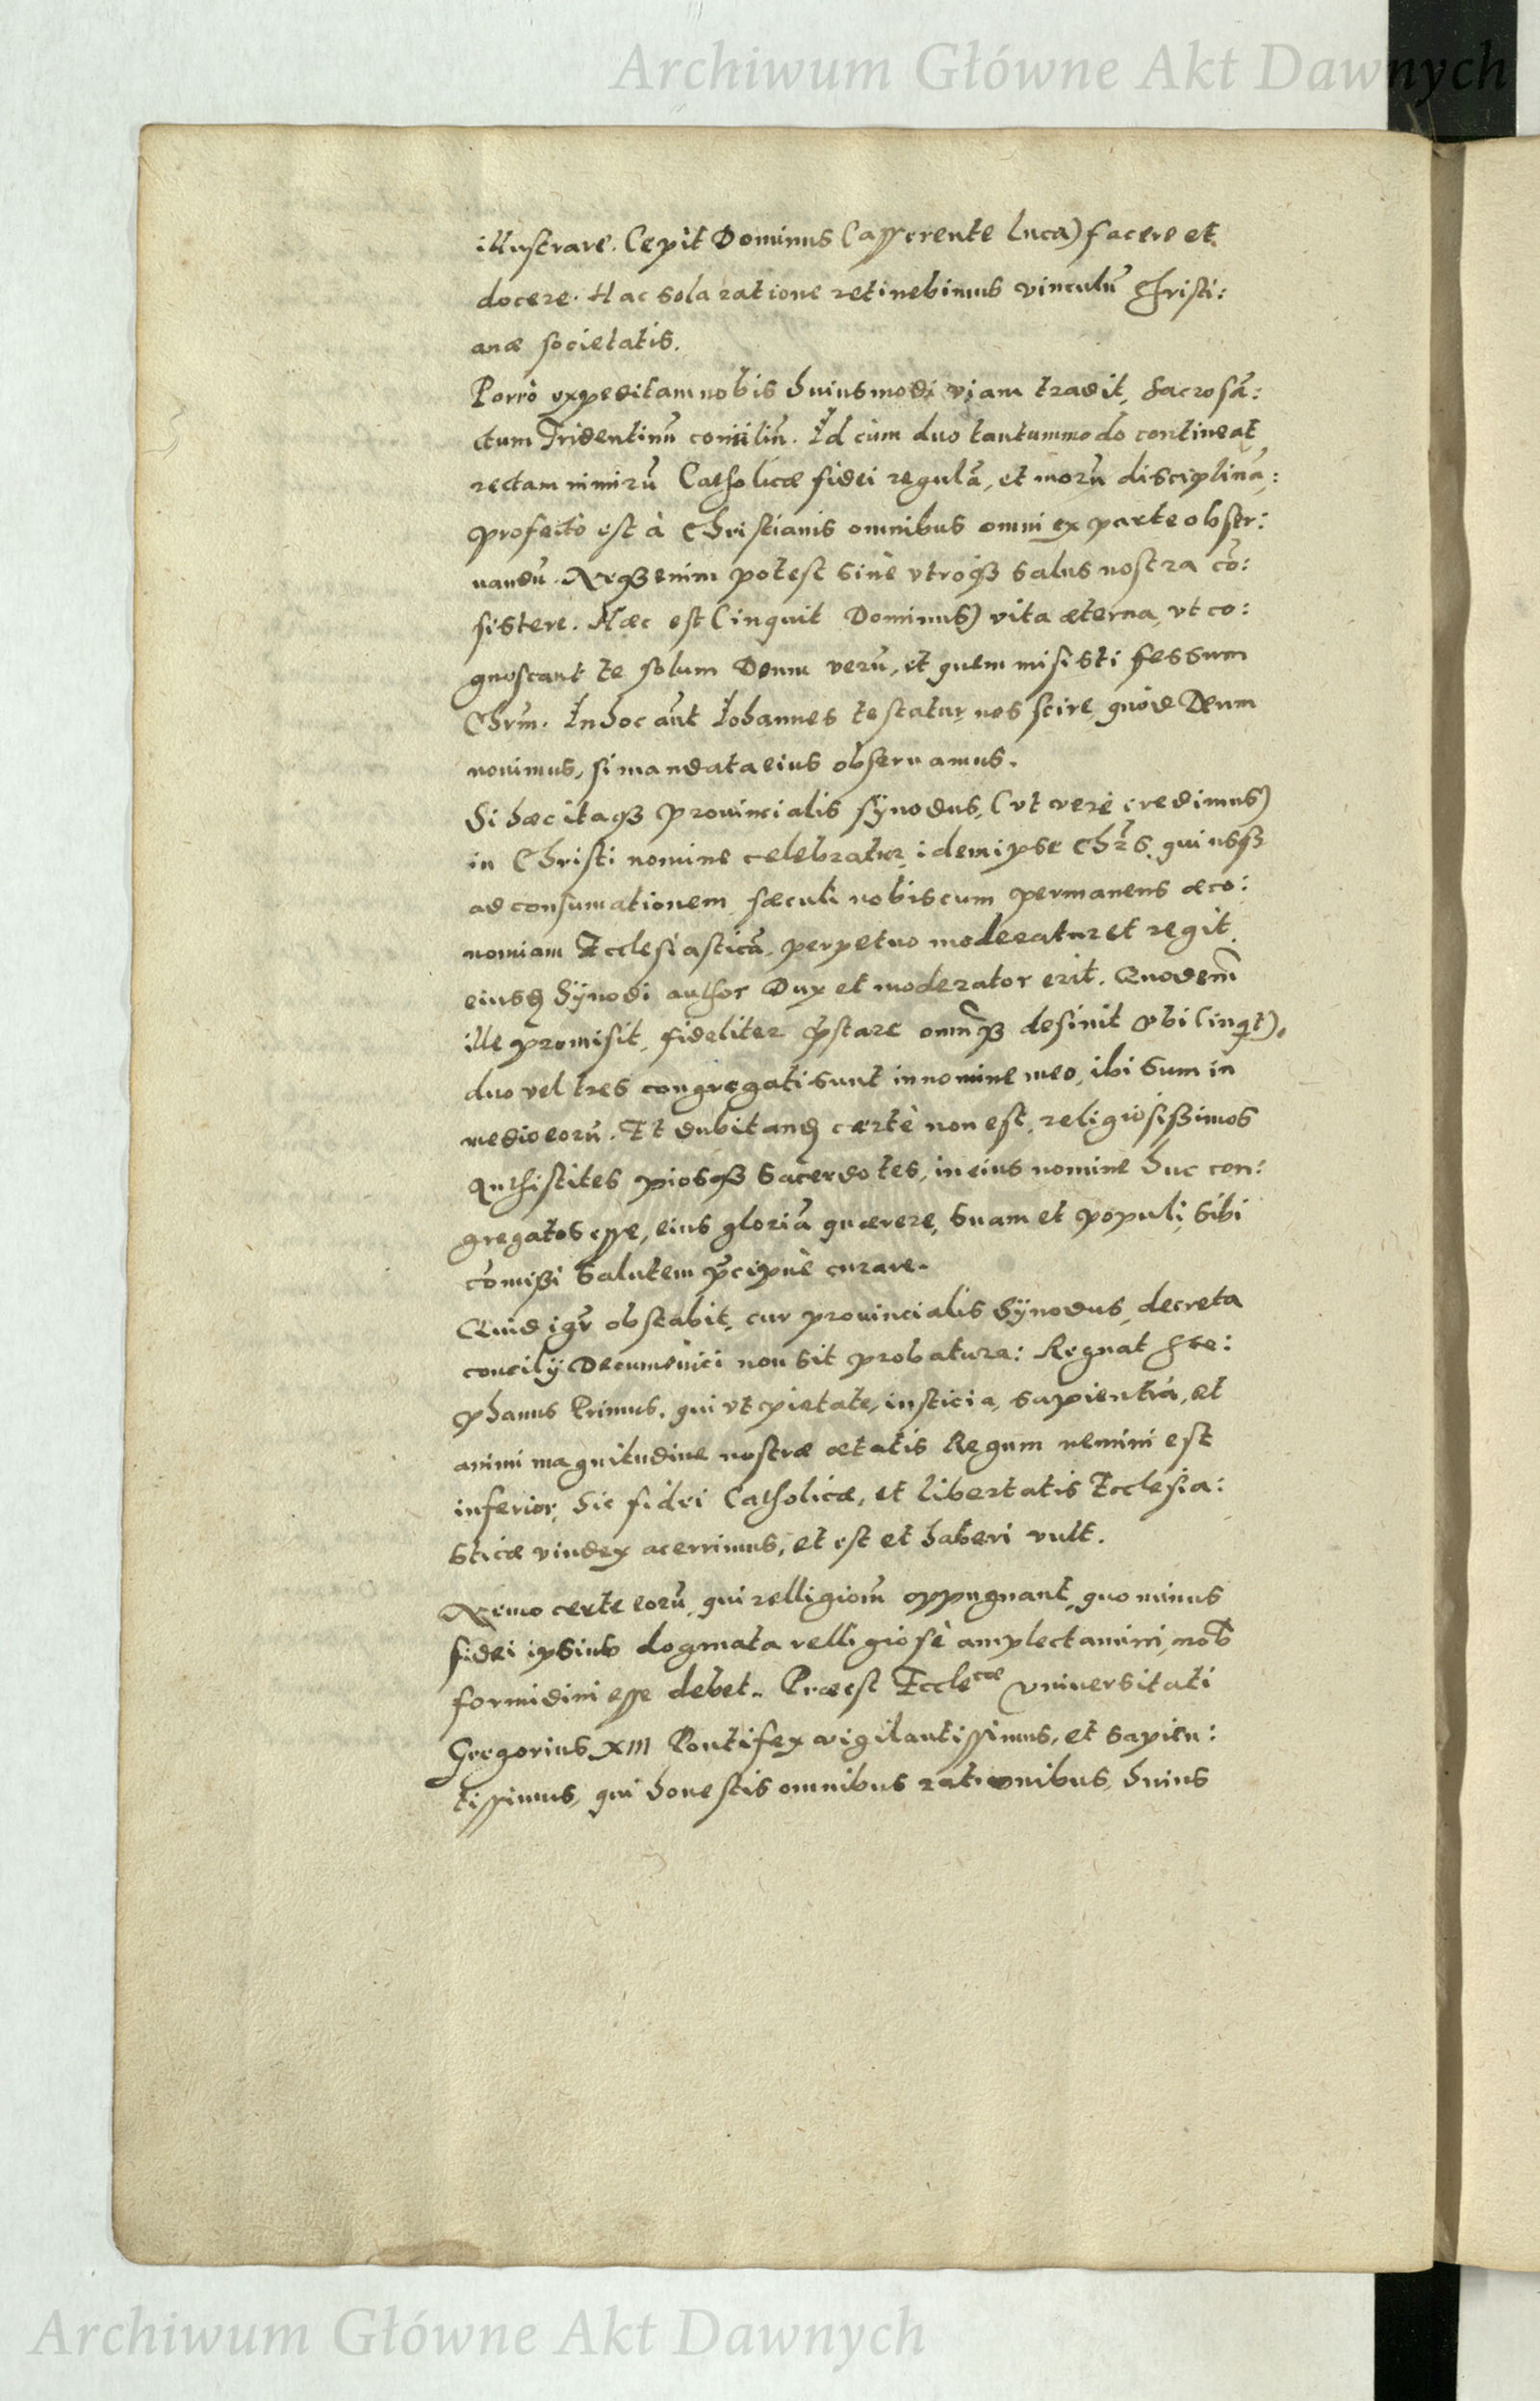 Archiwum Główne Akt Dawnych
illustrare. Cepit Dominus (asserente Luca) facere et
docere. Hac sola ratione retinebimus vinculū Christi:
anæ societatis.
Porrò expeditam nobis huiusmodi viam tradit, Sacrosā:
ctum Tridentinū conciliū. Id cùm duo tantummodo contineat
rectam nimirū Catholicæ fidei regulā, et morū disciplinā:
profectò est à Christianis omnibus omni ex parte obser:
uandū. Neqꝫ enim potest sinè vtroqꝫ salus nostra cō:
sistere. Hæc est (inquit Dominus) vita æterna, vt co:
gnoscant te solum Deum verū, et quem misisti Iessum
Chrm̄. In hoc aūt Iohannes testatur, nos scire, quòd Deum
nouimus, si mandata eius obseruamus.
Si hæc itaqꝫ prouincialis synodus, (vt verè credimus)
in Christi nomine celebratur, idem ipse Chrs̄, qui usqꝫ
ad consumationem sæculi nobiscum permanens œco:
nomiam Ecclesiasticā, perpetuo moderatur et regit,
eiusdꝫ Synodi author Dux et moderator erit. Quod em̄
ille promisit, fideliter p̄stare omn̄qꝫ desinit Vbi (inqt),
duo vel tres congregati sunt in nomine meo, ibi sum in
medio eorū. Et dubitandꝫ certè non est, religiosißimos
Anthistites piosqꝫ sacerdotes, in eius nomine huc con:
gregatos esse, eius gloriā quærere, suam et populi sibi
cōmißi salutem p̄cipuè curare.
Quid igr̄ obstabit, cur prouincialis Synodus, decreta
concilij Oecumenici non sit probatura: Regnat Ste:
phanus Primus, qui vt pietate, iusticia, sapientia, et
animi magnitudine nostræ ætatis Regum nemini est
inferior, Sic fidei Catholicæ, et libertatis Ecclesia:
sticæ vindex acerrimus, et est et haberi vult.
Nemo certe eorū, qui relligionē oppugnant, quo minus
fidei ipsius dogmata relligiosè amplectamini, nob̄
formidini esse debet. Præest Eccleᶜᵃᵉ vniuersitati
Gregorius XIII Pontifex vigilantissimus, et sapien:
tissimus, qui honestis omnibus rationibus, huius
Archiwum Główne Akt Dawnych